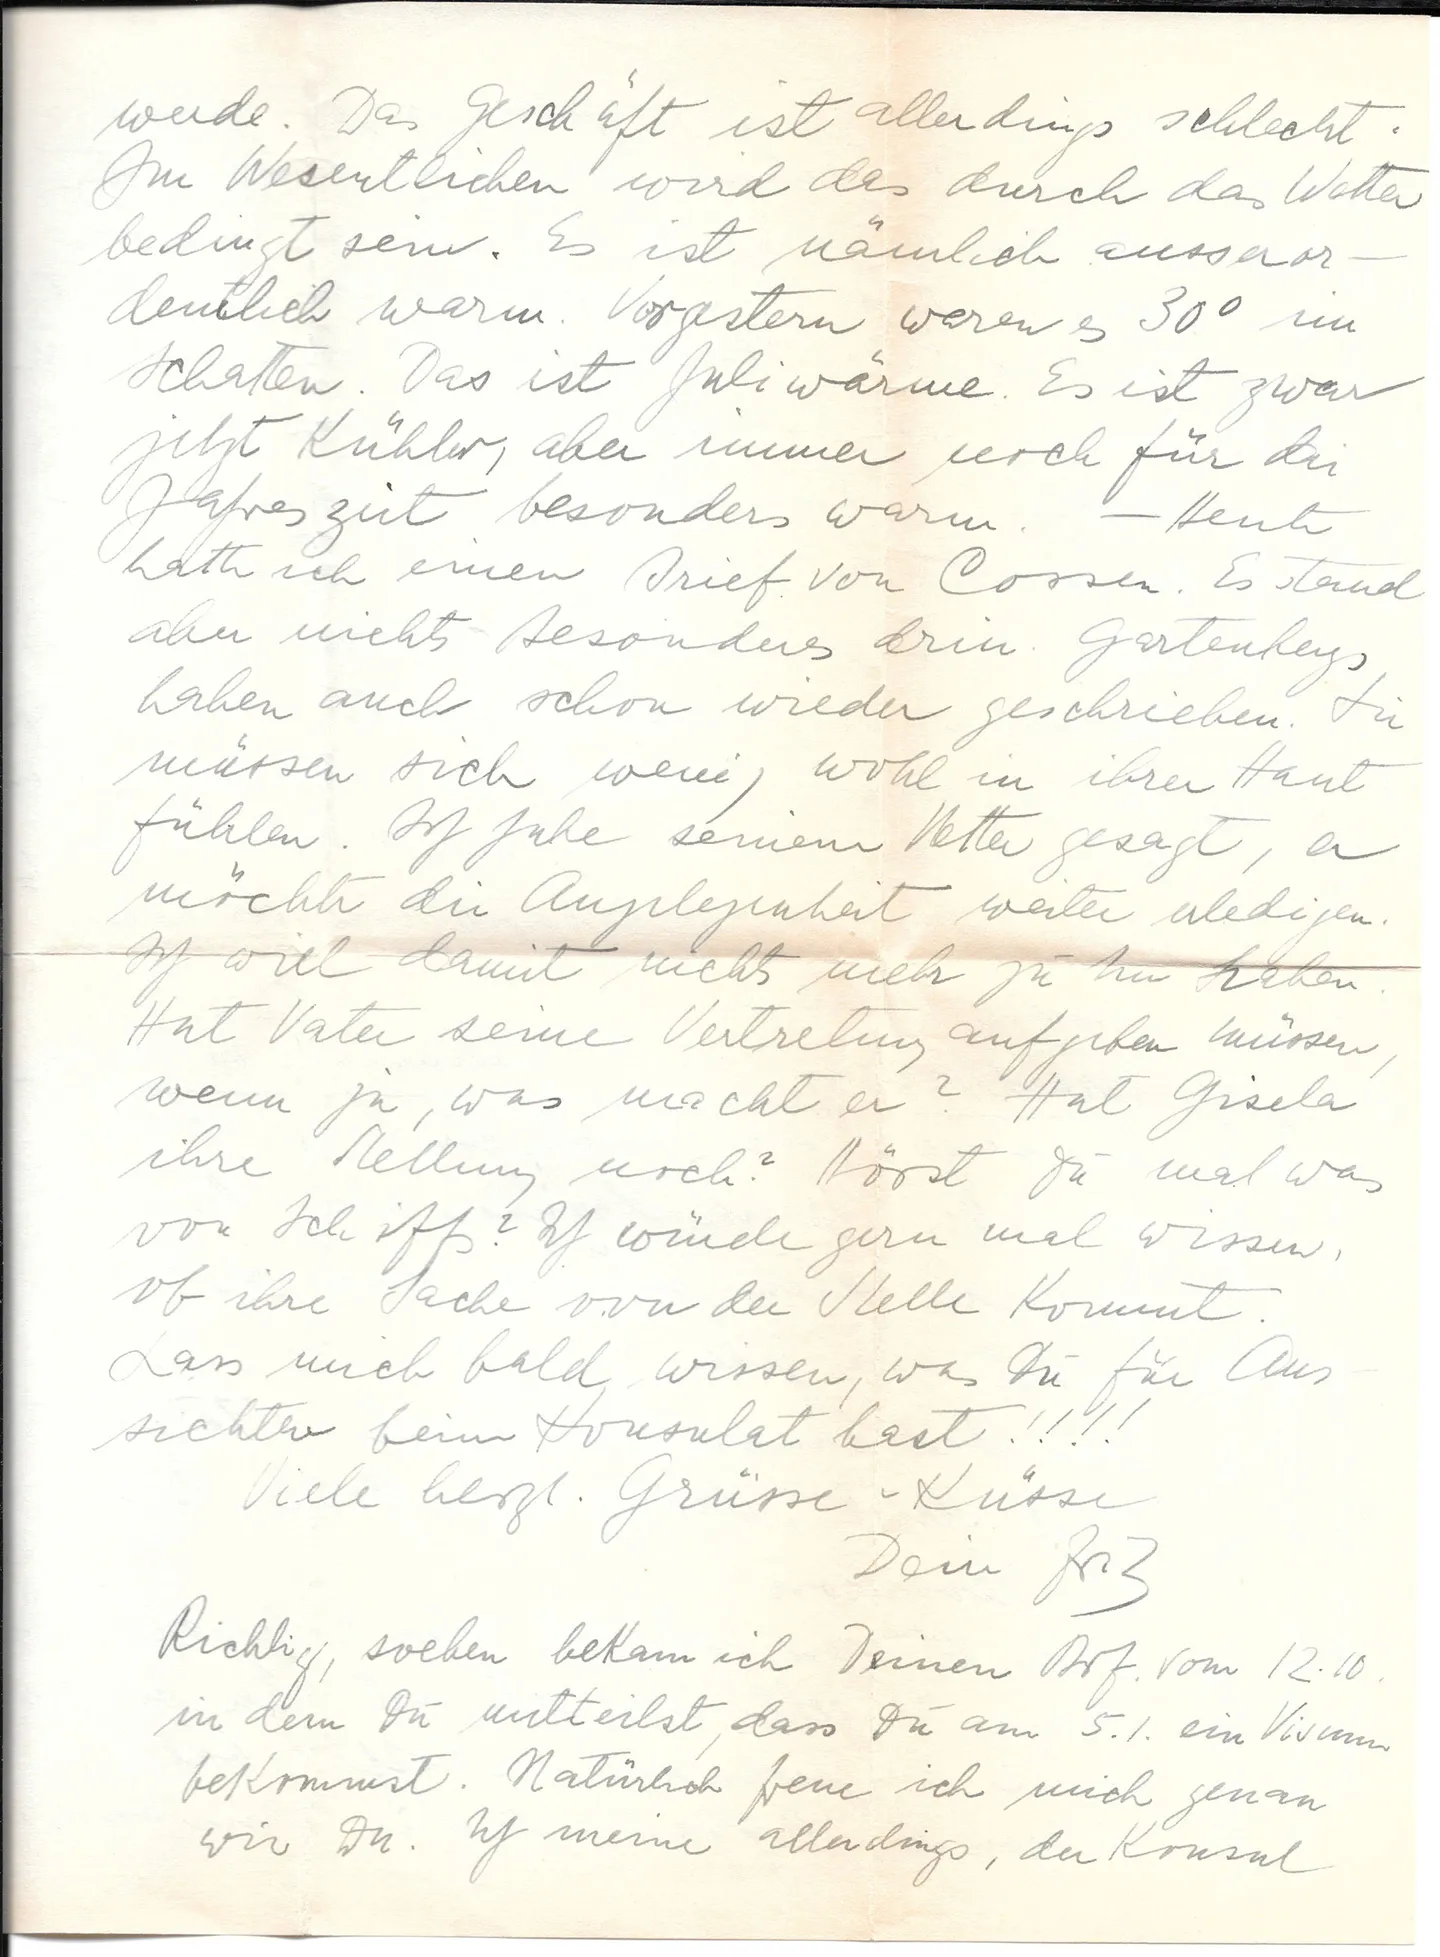 werde. Das Geschäft ist allerdings schlecht.
Im Wesentlichen wird das durch das Wetter
bedingt sein. Es ist nämlich ausseror-
dentlich warm. Vorgestern waren es 30° im
Schatten. Das ist Juliwärme. Es ist zwar
jetzt kühler, aber immer noch für die
Jahreszeit besonders warm. – Heute
hatte ich einen Brief von Cossen. Es stand
aber nichts Besonderes drin. Gartenbergs
haben auch schon wieder geschrieben. Sie
müssen sich wenig wohl in ihrer Haut
fühlen. Ich habe seinem Vetter gesagt, er
möchte die Angelegenheit weiter erledigen.
Ich will damit nichts mehr zu tun haben.
Hat Vater seine Vertretung aufgeben müssen,
wenn ja, was macht er? Hat Gisela
ihre Stellung noch? Hörst Du mal was
von Schiffs? Ich würde gern mal wissen,
ob ihre Sache von der Stelle kommt.
Lass mich bald wissen, was Du für Aus-
sichten beim Konsulat hast!!!!
Viele herzl. Grüsse - Küsse
Dein Fritz
Richtig, soeben bekam ich Deinen Brf. vom 12.10.
in dem Du mitteilst, dass Du am 5.1. ein Visum
bekommst. Natürlich freue ich mich genau
wie Du. Ich meine allerdings, der Konsul